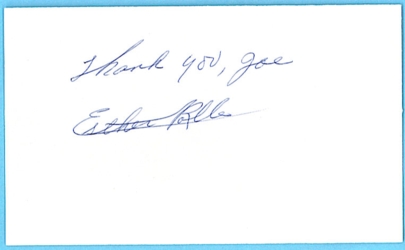 Thank you, Joe
Esther